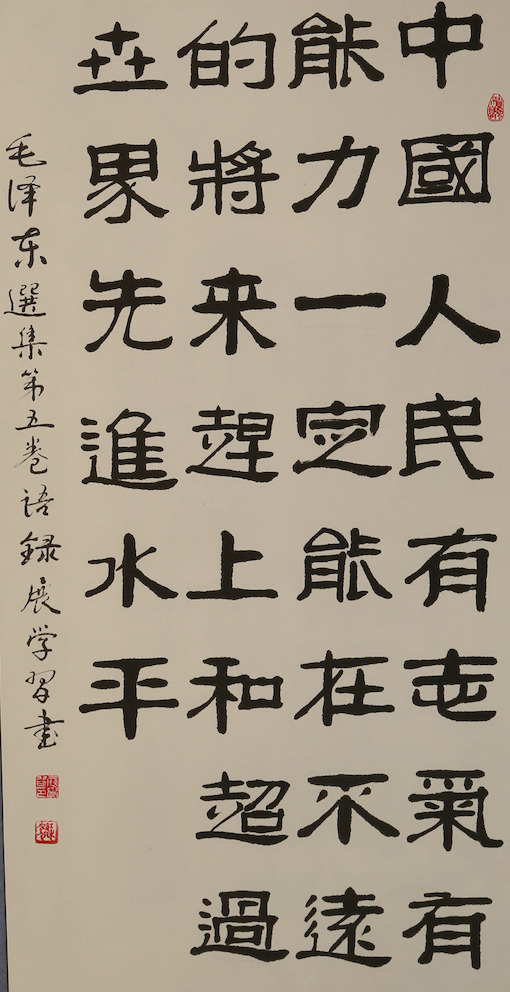 中國人民有志氣有
能力一定能在不遠
的將来趕上和超過
世界先進水平
毛泽东選集第五卷语録展学習書